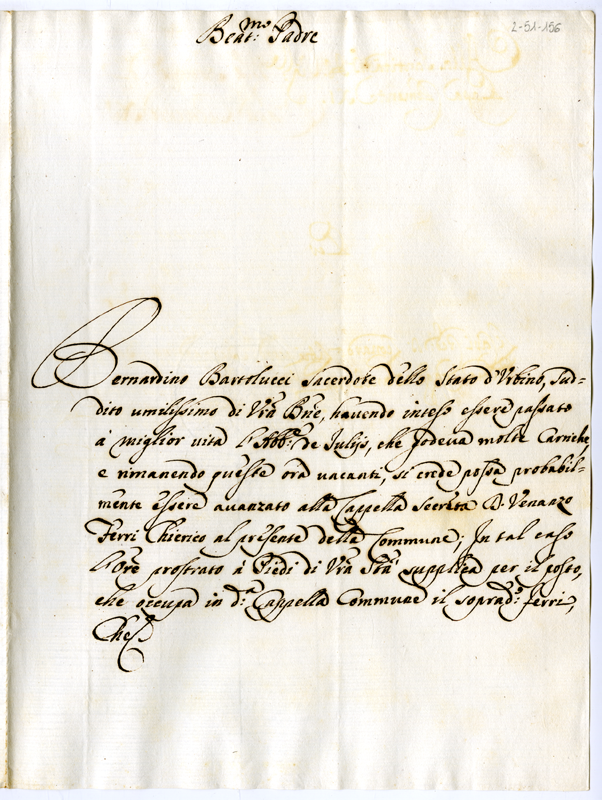 2-51-156
Beat.mo Padre
Bernardino Bartolucci Sacerdote dello Stato d'Urbino, Sud=
dito umilissimo di Vrã Bne, havendo inteso essere passato
à miglior vita l'Abb.e de Julijs, che godeva molte Cariche
e rimanendo queste ora vacanti, si crede possa probabil=
mente essere avanzato alla Cappella Secreta D. Venanzo
Ferri Chierico al presente della Commune; In tal caso
l'Ore prostrato à Piedi di Vrã Stà supplica per il posto,
che occupa in d.a Cappella Commune il soprad.o Ferri,
Che